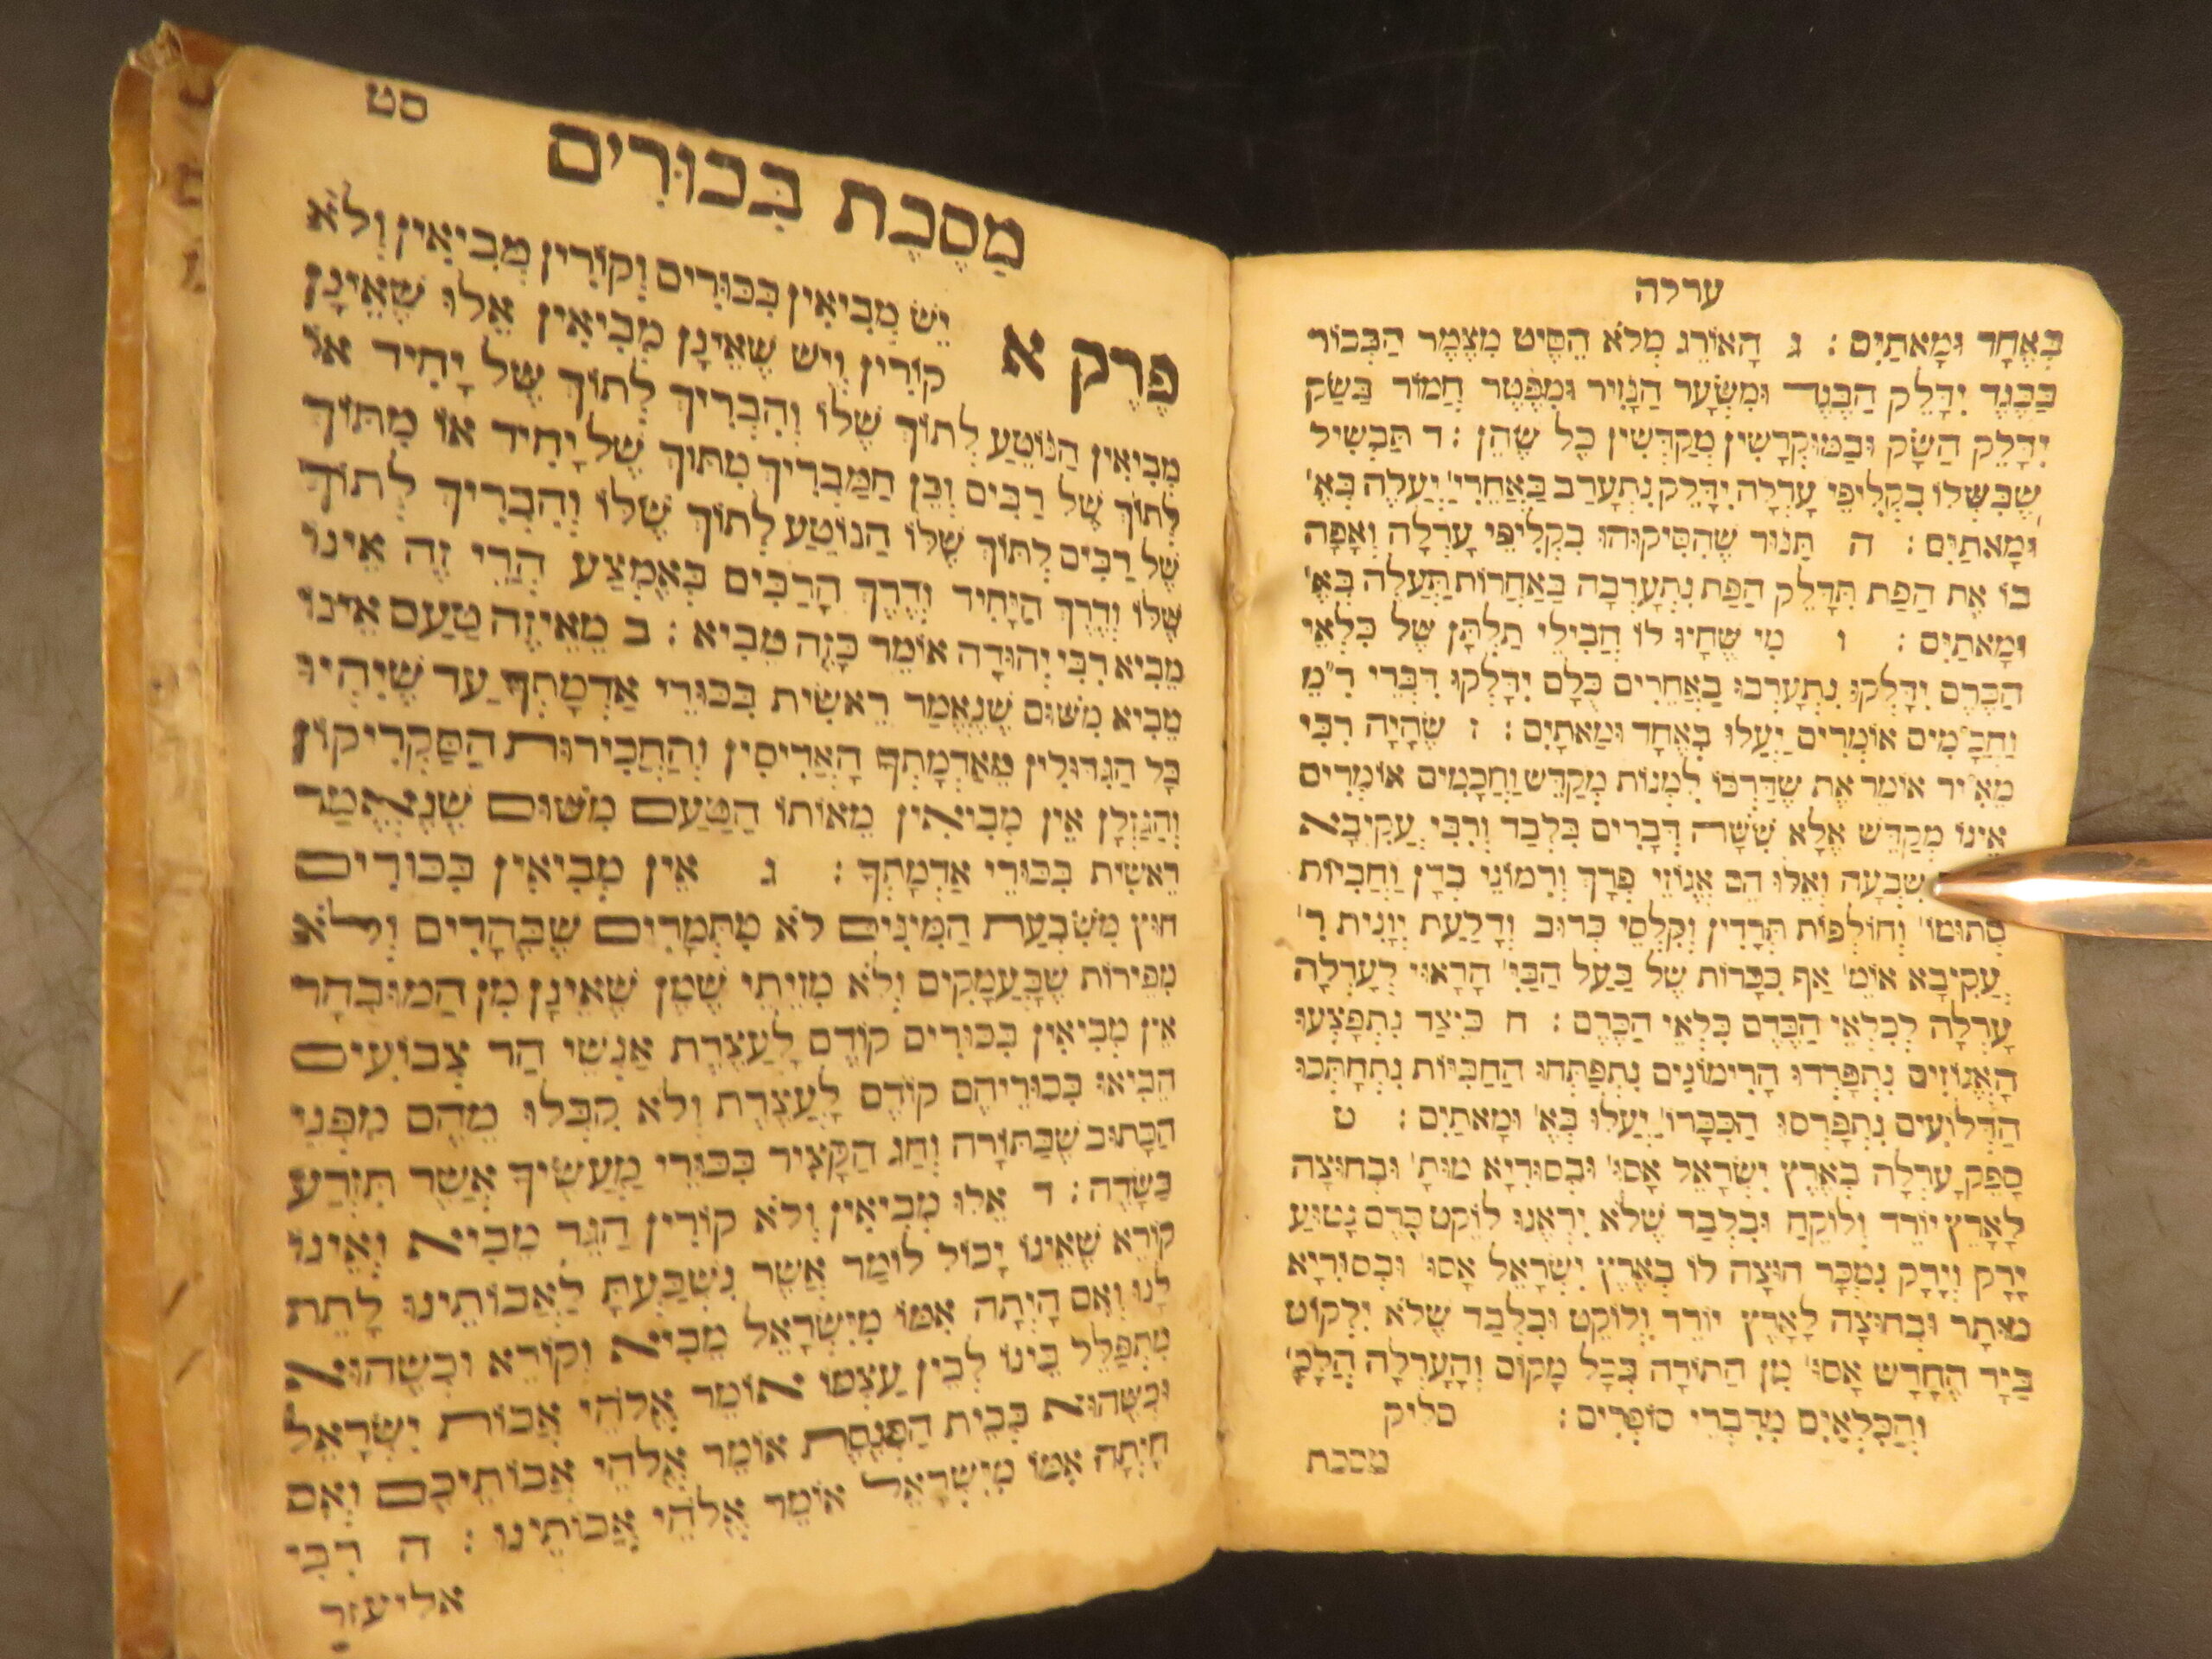 ערלה
בְּאֶחָד וּמָאתַיִם : ג הָאוֹרֵג מְלֹא הַסִּיט מִצֶּמֶר הַבְּכוֹר
בַּבֶּגֶד יִדָּלֵק הַבֶּגֶד וּמִשְּׂעַר הַנָּזִיר וּמִפֶּטֶר חֲמוֹר בַּשַּׂק
יִדָּלֵק הַשַּׂק וּבַמּוּקְדָשִׁין מְקַדְּשִׁין כָּל שֶׁהֵן : ד תַּבְשִׁיל
שֶׁבִּשְּׁלוֹ בִּקְלִיפֵּי עָרְלָה יִדָּלֵק נִתְעָרֵב בַּאֲחֵרִי' יַעֲלֶה בְּא'
וּמָאתַיִם : ה תַּנּוּר שֶׁהִסִּיקוּהוּ בִּקְלִיפֵּי עָרְלָה וְאָפָה
בוֹ אֶת הַפַּת תִּדָּלֵק הַפַּת נִתְעָרְבָה בַּאֲחֵרוֹת תַּעֲלֶה בְּא'
וּמָאתַיִם : ו מִי שֶׁהָיוּ לוֹ חֲבִילֵי תִלְתָּן שֶׁל כִּלְאֵי
הַכֶּרֶם יִדָּלְקוּ נִתְעָרְבוּ בַאֲחֵרִים כֻּלָּם יִדָּלְקוּ דִּבְרֵי ר"מ
וַחֲכָמִים אוֹמְרִים יַעֲלוּ בְּאֶחָד וּמָאתָיִם : ז שֶׁהָיָה רִבִּי
מֵאִיר אוֹמֵר אֶת שֶׁדַּרְכּוֹ לִמְנוֹת מְקַדֵּשׁ וַחֲכָמִים אוֹמְרִים
אֵינוֹ מְקַדֵּשׁ אֶלָּא שִׁשָּׁה דְּבָרִים בִּלְבַד וְרִבִּי עֲקִיבָא
שִׁבְעָה וְאֵלּוּ הֵם אֱגוֹזֵי פֶרֶךְ וְרִמּוֹנֵי בָדָן וְחָבִיּוֹת
סְתוּמוֹ' וְחוֹלְפוֹת תְּרָדִין וְקִלְסֵי כְרוּב וְדַלַעַת יְוָנִית ר'
עֲקִיבָא אוֹמ' אַף כִּכָּרוֹת שֶׁל בַּעַל הַבַּיִ' הָרָאוּי לְעָרְלָה
עָרְלָה לְכִלְאֵי הַכֶּרֶם כִּלְאֵי הַכֶּרֶם : ח כֵּיצַד נִתְפַּצְּעוּ
הָאֱגוֹזִים נִתְפָּרְדוּ הָרִימוֹנִים נִתְפַּתְּחוּ הַחָבִיּוֹת נִתְחַתְּכוּ
הַדְּלוּעִים נִתְפָּרְסוּ הַכִּכָּרוֹ' יַעֲלוּ בְּא' וּמָאתַיִם : ט
סָפֵק עָרְלָה בְּאֶרֶץ יִשְׂרָאֵל אָסוּ' וּבְסוּרְיָא מוּתָ' וּבְחוּצָה
לָאָרֶץ יוֹרֵד וְלוֹקֵחַ וּבִלְבַד שֶׁלֹּא יִרְאֶנּוּ לוֹקֵט כֶּרֶם נָטוּעַ
יָרָק וְיָרָק נִמְכָּר חוּצָה לוֹ בְּאֶרֶץ יִשְׂרָאֵל אָסוּ' וּבְסוּרְיָא
מוּתָר וּבְחוּצָה לָאָרֶץ יוֹרֵד וְלוֹקֵט וּבִלְבַד שֶׁלֹּא יִלְקוֹט
בַּיָּד הֶחָדָשׁ אָסוּ' מִן הַתּוֹרָה בְּכָל מָקוֹם וְהָעָרְלָה הֲלָכָ'
וְהַכִּלְאַיִם מִדִּבְרֵי סוֹפְרִים : סליק
מסכת
סט
מַסֶּכֶת בִּכּוּרִים
פֶּרֶק א
יֵשׁ מְבִיאִין בִּכּוּרִים וְקוֹרִין מְבִיאִין וְלֹא
קוֹרִין וְיֵשׁ שֶׁאֵינָן מְבִיאִין אֵלּוּ שֶׁאֵינָן
מְבִיאִין הַנּוֹטֵעַ לְתוֹךְ שֶׁלּוֹ וְהִבְרִיךְ לְתוֹךְ שֶׁל יָחִיד אוֹ
לְתוֹךְ שֶׁל רַבִּים וְכֵן הַמַּבְרִיךְ מִתּוֹךְ שֶׁל יָחִיד אוֹ מִתּוֹךְ
שֶׁל רַבִּים לְתוֹךְ שֶׁלּוֹ הַנּוֹטֵעַ לְתוֹךְ שֶׁלּוֹ וְהִבְרִיךְ לְתוֹךְ
שֶׁלּוֹ וְדֶרֶךְ הַיָּחִיד וְדֶרֶךְ הָרַבִּים בְּאֶמְצַע הֲרֵי זֶה אֵינוֹ
מֵבִיא רִבִּי יְהוּדָה אוֹמֵר כָּזֶה מֵבִיא : ב מֵאֵיזֶה טַעַם אֵינוֹ
מֵבִיא מִשּׁוּם שֶׁנֶּאֱמַר רֵאשִׁית בִּכּוּרֵי אַדְמָתְךָ עַד שֶׁיִּהְיוּ
כָּל הַגִּדּוּלִין מֵאַדְמָתְךָ הָאֲרִיסִין וְהַחֲכִירוּת הַסַּקְרִיקוֹן
וְהַגַּזְלָן אֵין מְבִיאִין מֵאוֹתוֹ הַטַּעַם מִשּׁוּם שֶׁנֶּאֱמַר
רֵאשִׁית בִּכּוּרֵי אַדְמָתְךָ : ג אֵין מְבִיאִין בִּכּוּרִים
חוּץ מִשִּׁבְעַת הַמִּינִים לֹא מִתְּמָרִים שֶׁבֶּהָרִים וְלֹא
מִפֵּירוֹת שֶׁבָּעֲמָקִים וְלֹא מִזֵּיתֵי שֶׁמֶן שֶׁאֵינָן מִן הַמּוּבְחָר
אֵין מְבִיאִין בִּכּוּרִים קוֹדֶם לָעֲצֶרֶת אַנְשֵׁי הַר צְבוֹעִים
הֵבִיאוּ בִּכּוּרֵיהֶם קוֹדֶם לָעֲצֶרֶת וְלֹא קִבְּלוּ מֵהֶם מִפְּנֵי
הַכָּתוּב שֶׁבַּתּוֹרָה וְחַג הַקָּצִיר בִּכּוּרֵי מַעֲשֶׂיךָ אֲשֶׁר תִּזְרַע
בַּשָּׂדֶה : ד אֵלּוּ מְבִיאִין וְלֹא קוֹרִין הַגֵּר מֵבִיא וְאֵינוֹ
קוֹרֵא שֶׁאֵינוֹ יָכוֹל לוֹמַר אֲשֶׁר נִשְׁבַּעְתָּ לַאֲבוֹתֵינוּ לָתֵת
לָנוּ וְאִם הָיְתָה אִמּוֹ מִיִּשְׂרָאֵל מֵבִיא וְקוֹרֵא וּכְשֶׁהוּא
מִתְפַּלֵּל בֵּינוֹ לְבֵין עַצְמוֹ אוֹמֵר אֱלֹהֵי אֲבוֹת יִשְׂרָאֵל
וּכְשֶׁהוּא בְּבֵית הַכְּנֶסֶת אוֹמֵר אֱלֹהֵי אֲבוֹתֵיכֶם וְאִם
הָיְתָה אִמּוֹ מִיִּשְׂרָאֵל אוֹמֵר אֱלֹהֵי אֲבוֹתֵינוּ : ה רִבִּי
אליעזר